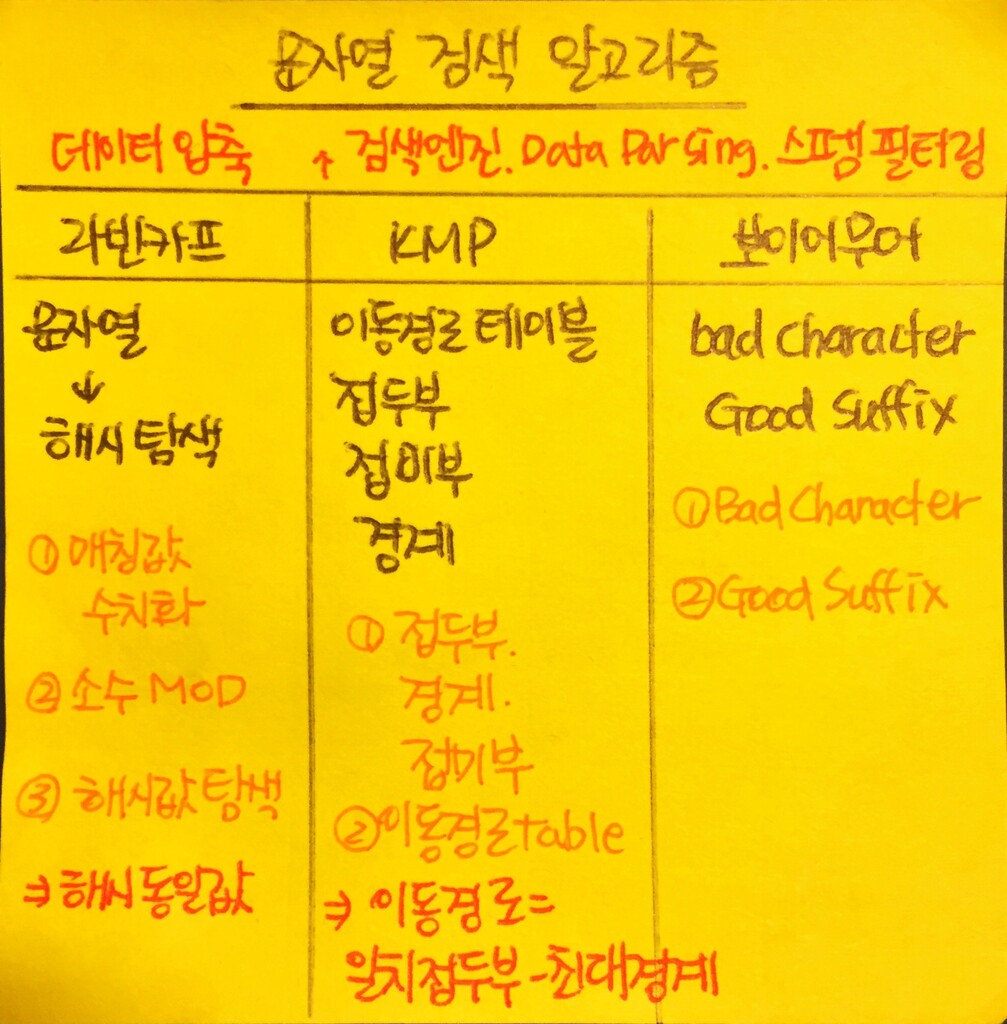 문자열 검색 알고리즘
데이터 압축 ↑ 검색엔진. Data Parsing. 스팸필터링
라빈카프
문자열
↓
해시 탐색
① 매칭값
수치화
② 소수 MOD
③ 해시값 탐색
⇒ 해시 동일값
KMP
이동경로 테이블
접두부
접미부
경계
① 접두부.
경계.
접미부
② 이동경로 table
⇒ 이동경로 =
일치접두부 - 최대경계
보이어무어
bad character
Good Suffix
① Bad Character
② Good Suffix